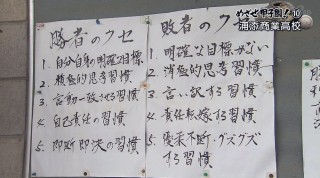 めざせ甲子園!'10
浦添商業高校
勝者のクセ
1. 自分自身の明確な目標
2. 積極的思考習慣
3. 言動一致させる習慣
4. 自己責任の習慣
5. 即断即決の習慣
敗者のクセ
1. 明確な目標がない
2. 消極的思考習慣
3. 言い訳する習慣
4. 責任転嫁する習慣
5. 優柔不断・グズグズ
する習慣